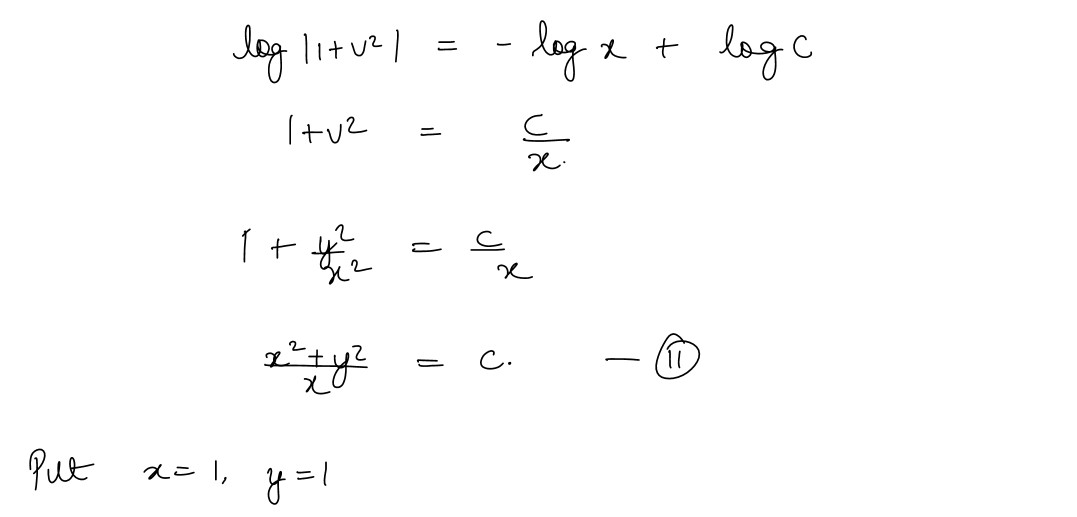 log |1+v²| = - log x + log C
1+v² = C/x.
1 + y²/x² = C/x
(x²+y²)/x = C. — (II)
Put x=1, y=1